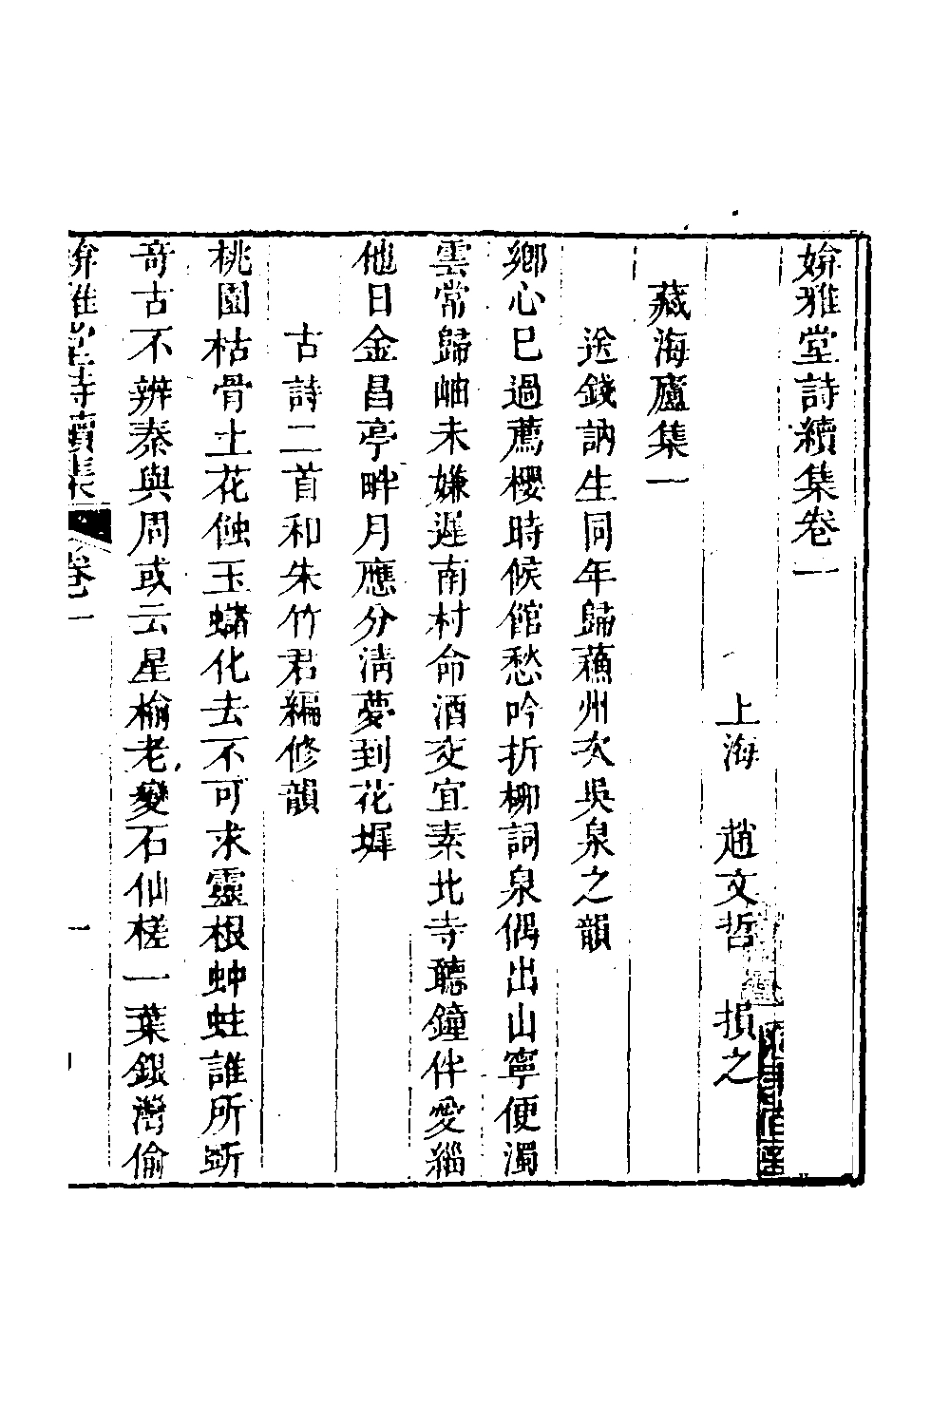 媕雅堂詩續集卷一
上海 趙文哲 損之
藏海廬集一
送錢訥生同年歸蘓州次吳泉之韻
鄉心巳過薦櫻時候館愁吟折柳詞泉偶出山寧便濁
雲常歸岫未嫌遲南村命酒交宜素北寺聽鐘伴愛緇
他日金昌亭畔月應分清夢到花墀
古詩二首和朱竹君編修韻
桃園枯骨土花蝕玉蟠化去不可求靈根蚛蛀誰所斲
奇古不辨秦與周或云星榆老變石仙槎一葉銀灣偷
媕雅堂詩續集 卷一 一